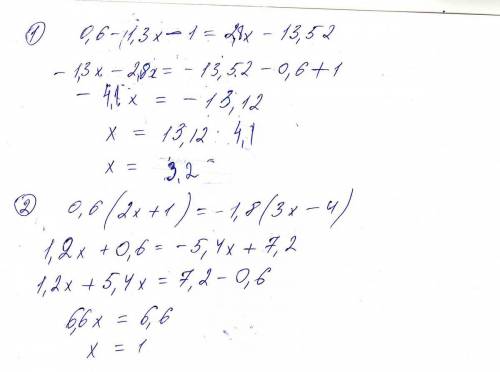 ① 0,6 - 1,3x - 1 = 2,8x - 13,52
- 1,3x - 2,8x = - 13,52 - 0,6 + 1
- 4,1x = - 13,12
x = 13,12 : 4,1
x = 3,2
② 0,6 (2x + 1) = - 1,8 (3x - 4)
1,2x + 0,6 = - 5,4x + 7,2
1,2x + 5,4x = 7,2 - 0,6
6,6x = 6,6
x = 1